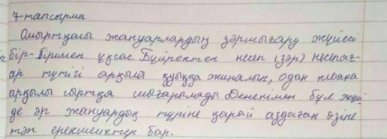 7-тапсырма
Омыртқалы жануарлардың зәршығару жүйесі
бір-бірімен ұқсас. Бүйректен несеп (зәр) несепағ-
ар түтігі арқылы қуыққа жиналып, одан клоака
арқылы сыртқа шығарылады. Дегенмен бұл жүйе-
де әр жануардың түріне қарай аздаған өзіне
тән ерекшеліктер бар.